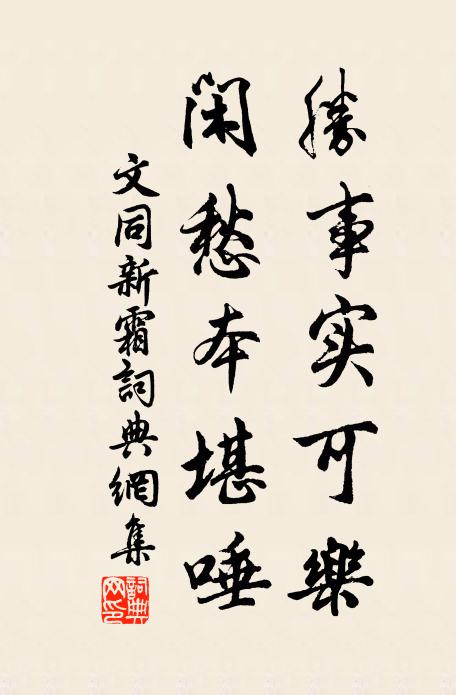 勝事实可樂
閑愁本堪唾
文同新霜詞典網集
詞典网印